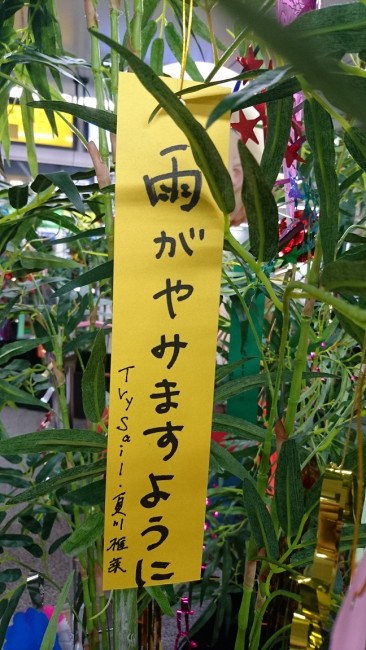 雨がやみますように
TrySail・夏川椎菜